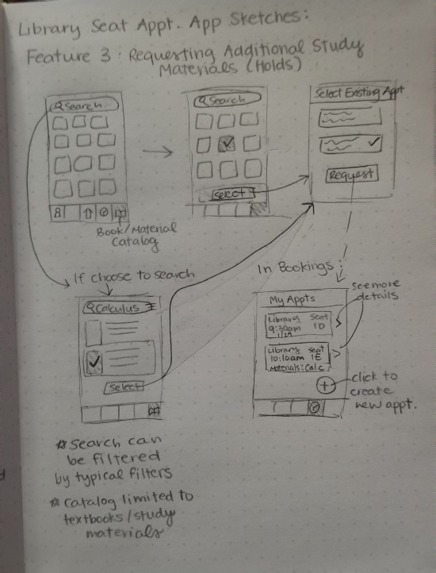 Library Seat Appt. App Sketches:
Feature 3: Requesting Additional Study
Materials (Holds)
Search
Search
Select Existing Appt
select
Request
Book/Material
Catalog
If choose to search
In Bookings:
see more
details
Calculus
select
My Appts
Library Seat
9:30am 1D
1/29
Library Seat
10:10am 1E
Materials: Calc
click to
create
new appt.
* Search can
be filtered
by typical filters
* Catalog limited to
textbooks/study
materials